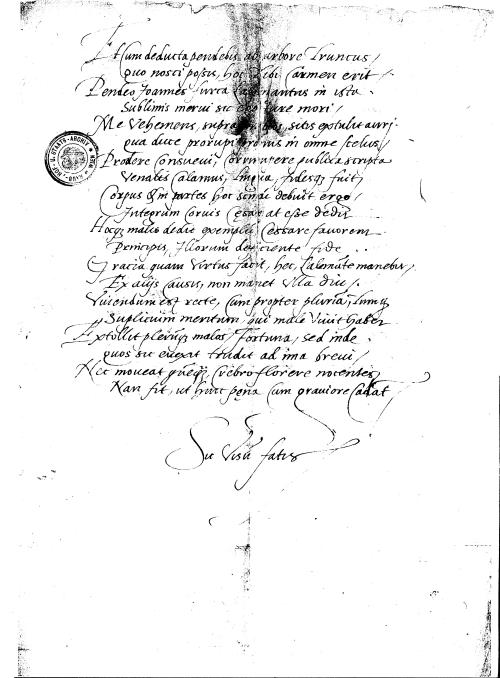 Et cum deducta pendebis ab arbore truncus,
quo nosci possis, hoc tibi Carmen erit
Pendeo Joannes furca in ista
Sublimis merui sic mori.
Me Vehemens, supra sitis extulit auri.
qua duce prorupi pronus in omne scelus,
Prodere Consuevi, Corrumpere publica scripta
Venalis Calamus, lingua, fidesq fuit,
Corpus in partes hoc debuit ergo,
Integrum Corvis Cesar at esse dedit
Hocq malis dedit exemplum Cessare favorem
Principis, Illorum deficiente fide . .
Gracia quam Virtus facit, hec manebit,
Ex alijs Causis, non manet Ulla diu,
Vivendum est recte, Cum propter plurima,
Suplicium meritum, qui male Vivit habet
Extollit malos Fortuna, sed inde
quos sic evexit trudit ad ima brevi,
Nec moveat Crebro florere nocentes
Nan fit, ut hunc pena Cum graviore Cadat
Sic Visu fatis
HAUS-HOF-U. STAATS-ARCHIV WIEN